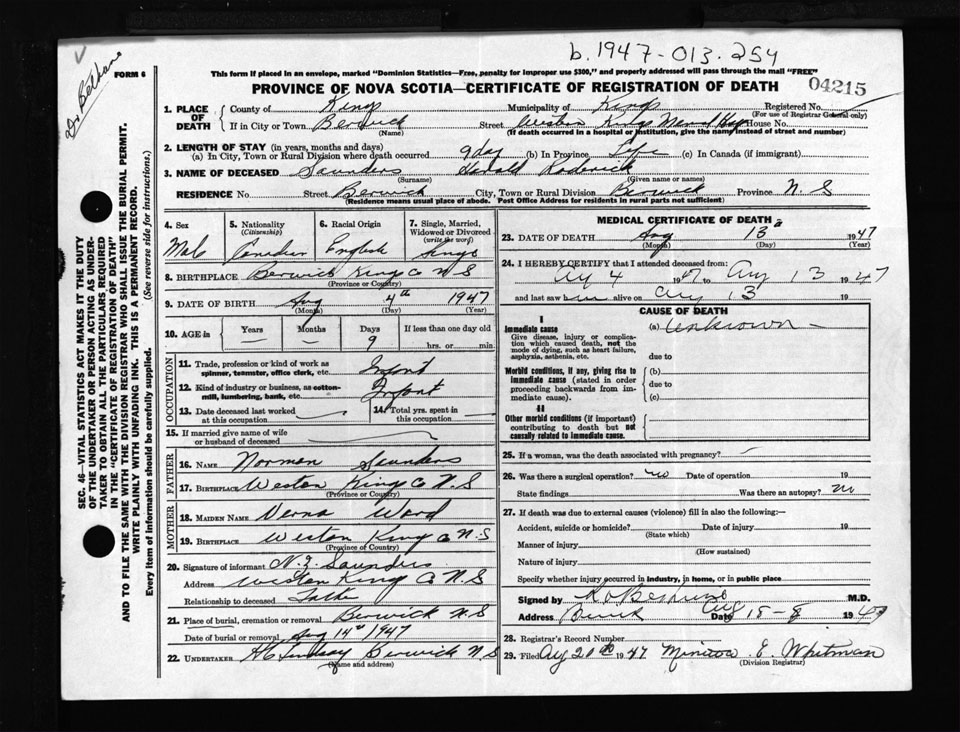 b. 1947-013.254
Dr Bethune
FORM 6
This form if placed in an envelope, marked "Dominion Statistics—Free, penalty for improper use $300," and properly addressed will pass through the mail "FREE"
PROVINCE OF NOVA SCOTIA—CERTIFICATE OF REGISTRATION OF DEATH
04215
SEC. 46—VITAL STATISTICS ACT MAKES IT THE DUTY
OF THE UNDERTAKER OR PERSON ACTING AS UNDER-
TAKER TO OBTAIN ALL THE PARTICULARS REQUIRED
IN THE "CERTIFICATE OF REGISTRATION OF DEATH"
AND TO FILE THE SAME WITH THE DIVISION REGISTRAR WHO SHALL ISSUE THE BURIAL PERMIT.
WRITE PLAINLY WITH UNFADING INK. THIS IS A PERMANENT RECORD.
Every item of information should be carefully supplied. (See reverse side for instructions.)
1. PLACE OF DEATH
County of Kings Municipality of Kings Registered No.
(For use of Registrar General only)
If in City or Town Berwick Street Western Kings Hosp House No.
(Name) (If death occurred in a hospital or institution, give the name instead of street and number)
2. LENGTH OF STAY (in years, months and days)
(a) In City, Town or Rural Division where death occurred 9 day (b) In Province Life (c) In Canada (if immigrant)
3. NAME OF DECEASED Saunders Harold Roderick
(Surname) (Given name or names)
RESIDENCE No. Street Berwick City, Town or Rural Division Berwick Province N. S
(Residence means usual place of abode. Post Office Address for residents in rural parts not sufficient)
4. Sex Male
5. Nationality (Citizenship) Canadian
6. Racial Origin English
7. Single, Married, Widowed or Divorced (write the word) Single
8. BIRTHPLACE Berwick King Co N.S
(Province or Country)
9. DATE OF BIRTH Aug 4th 1947
(Month) (Day) (Year)
10. AGE in Years Months Days If less than one day old
— — 9 hrs. or min.
OCCUPATION
11. Trade, profession or kind of work as spinner, teamster, office clerk, etc. Infant
12. Kind of industry or business, as cotton-mill, lumbering, bank, etc. Infant
13. Date deceased last worked at this occupation
14. Total yrs. spent in this occupation
15. If married give name of wife or husband of deceased
FATHER
16. NAME Norman Saunders
17. BIRTHPLACE Weston King Co N.S
(Province or Country)
MOTHER
18. MAIDEN NAME Verna Ward
19. BIRTHPLACE Weston King Co N.S
(Province or Country)
20. Signature of informant N. Z. Saunders
Address Weston King Co N.S
Relationship to deceased Father
21. Place of burial, cremation or removal Berwick N.S
Date of burial or removal Aug 14th 1947
22. UNDERTAKER Lindsay Berwick N S
(Name and address)
MEDICAL CERTIFICATE OF DEATH
23. DATE OF DEATH Aug 13th 1947
(Month) (Day) (Year)
24. I HEREBY CERTIFY that I attended deceased from:
Aug 4 1947 Aug 13 1947
and last saw him alive on Aug 13 19
CAUSE OF DEATH
I
Immediate cause (a) Unknown —
Give disease, injury or complication which caused death, not the mode of dying, such as heart failure, asphyxia, asthenia, etc.
due to
Morbid conditions, if any, giving rise to immediate cause (stated in order proceeding backwards from immediate cause).
(b)
due to
(c)
II
Other morbid conditions (if important) contributing to death but not causally related to immediate cause.
25. If a woman, was the death associated with pregnancy? —
26. Was there a surgical operation? no Date of operation 19
State findings Was there an autopsy? no
27. If death was due to external causes (violence) fill in also the following:—
Accident, suicide or homicide? Date of injury 19
(State which)
Manner of injury
(How sustained)
Nature of injury
Specify whether injury occurred in industry, in home, or in public place
Signed by Bethune M.D.
Address Berwick Date Aug 15-8 1947
28. Registrar's Record Number
29. Filed Aug 20th 1947 E. Whitman
(Division Registrar)